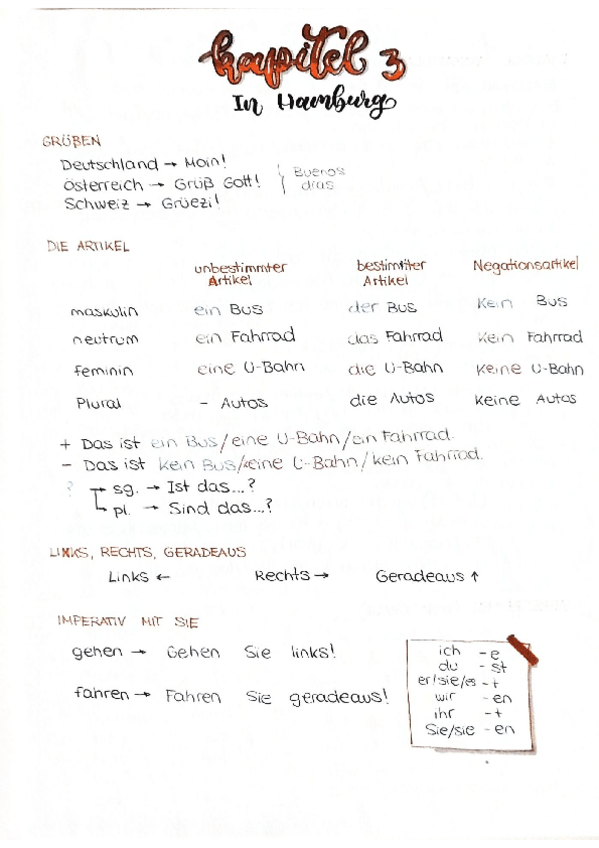 Kapitel 3
In Hamburg
GRÜßEN
Deutschland → Moin!
Österreich → Grüß Gott!
Schweiz → Grüezi!
Buenos
días
DIE ARTIKEL
unbestimmter Artikel bestimmter Artikel Negationsartikel
maskulin ein Bus der Bus Kein Bus
neutrum ein Fahrrad das Fahrrad Kein Fahrrad
feminin eine U-Bahn die U-Bahn Keine U-Bahn
Plural - Autos die Autos keine Autos
+ Das ist ein Bus/eine U-Bahn/ein Fahrrad.
- Das ist kein Bus/keine U-Bahn/kein Fahrrad.
? → sg. → Ist das...?
↳ pl. → Sind das...?
LINKS, RECHTS, GERADEAUS
Links ← Rechts → Geradeaus ↑
IMPERATIV MIT SIE
gehen → Gehen Sie links!
fahren → Fahren Sie geradeaus!
ich -e
du -st
er/sie/es -t
wir -en
ihr -t
Sie/sie -en